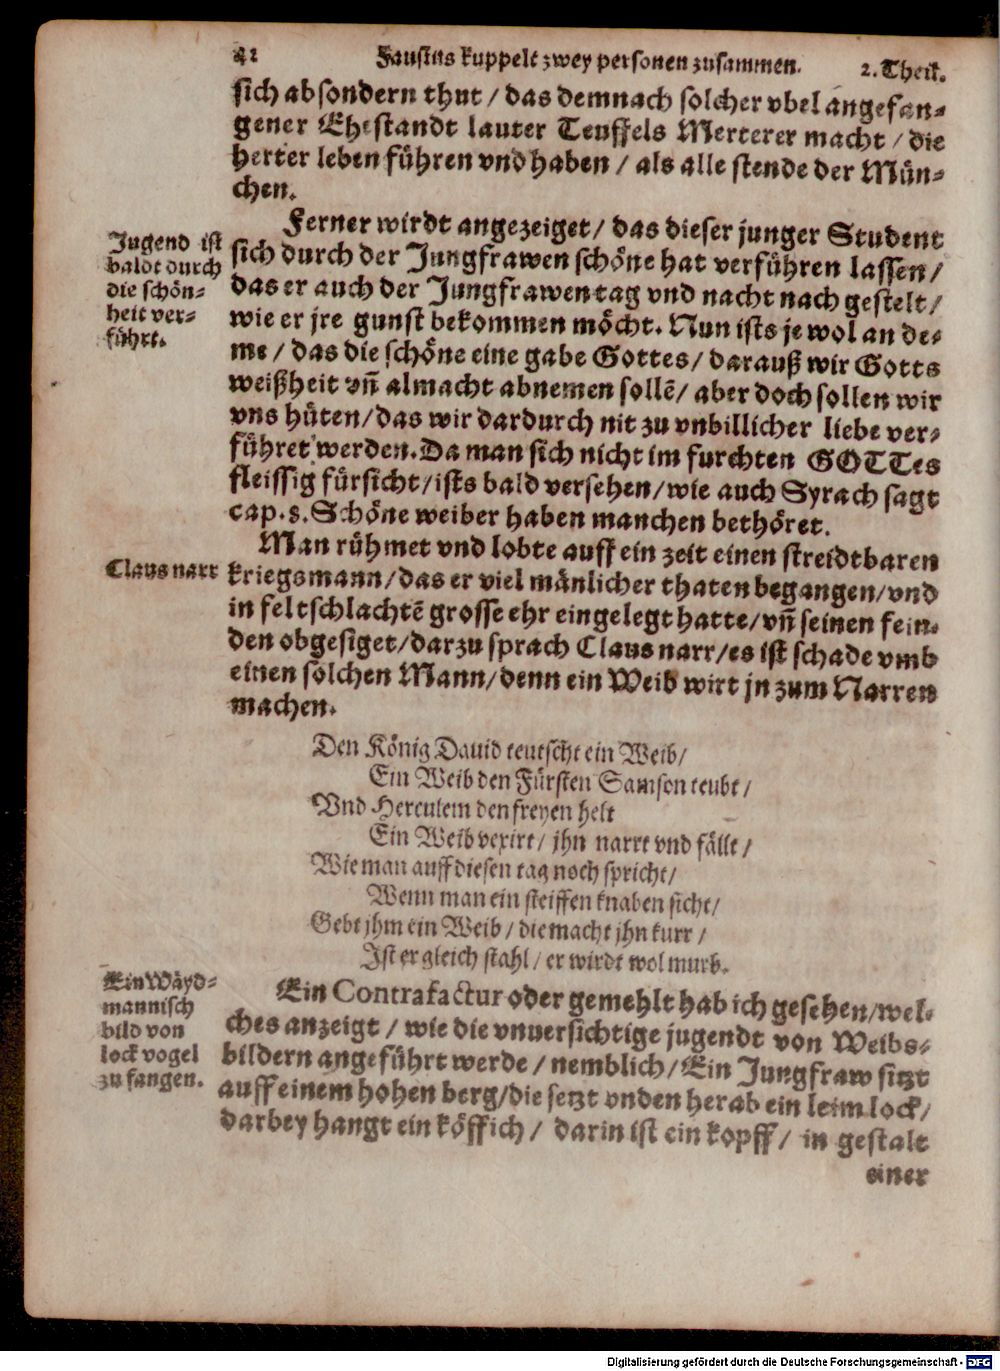 42 Faustus kuppelt zwey personen zusammen. 2. Theil.
sich absondern thut / das demnach solcher vbel angefan-
gener Ehestandt lauter Teuffels Merterer macht / die
herter leben führen vnd haben / als alle stende der Mün-
chen.
Ferner wirdt angezeiget / das dieser junger Student
sich durch der Jungfrawen schöne hat verführen lassen /
das er auch der Jungfrawen tag vnd nacht nach gestelt /
wie er jre gunst bekommen möcht. Nun ists je wol an de-
me / das die schöne eine gabe Gottes / darauß wir Gotts
weißheit vñ almacht abnemen sollẽ / aber doch sollen wir
vns hüten / das wir dardurch nit zu vnbillicher liebe ver-
führet werden. Da man sich nicht im furchten GOTTes
fleissig fürsicht / ists bald versehen / wie auch Syrach sagt
cap. 8. Schöne weiber haben manchen bethöret.
Jugend ist
baldt durch
die schön-
heit ver-
führt.
Man rühmet vnd lobte auff ein zeit einen streidtbaren
kriegsmann / das er viel mänlicher thaten begangen / vnd
in feltschlachtẽ grosse ehr eingelegt hatte / vñ seinen fein-
den obgesiget / darzu sprach Claus narr / es ist schade vmb
einen solchen Mann / denn ein Weib wirt jn zum Narren
machen.
Claus narr
Den König Dauid teutscht ein Weib /
Ein Weib den Fürsten Samson teubt /
Vnd Herculem den freyen helt
Ein Weib vexirt / jhn narrt vnd fällt /
Wie man auff diesen tag noch spricht /
Wenn man ein steiffen knaben sicht /
Gebt jhm ein Weib / die macht jhn kurr /
Ist er gleich stahl / er wirdt wol murb.
Ein Contrafactur oder gemehlt hab ich gesehen / wel-
ches anzeigt / wie die vnuersichtige jugendt von Weibs-
bildern angeführt werde / nemblich / Ein Jungfraw sitzt
auff einem hohen berg / die setzt vnden herab ein leim lock /
darbey hangt ein köffich / darin ist ein kopff / in gestalt
einer
Ein Wäyd-
mannisch
bild von
lock vogel
zu fangen.
Digitalisierung gefördert durch die Deutsche Forschungsgemeinschaft - DFG